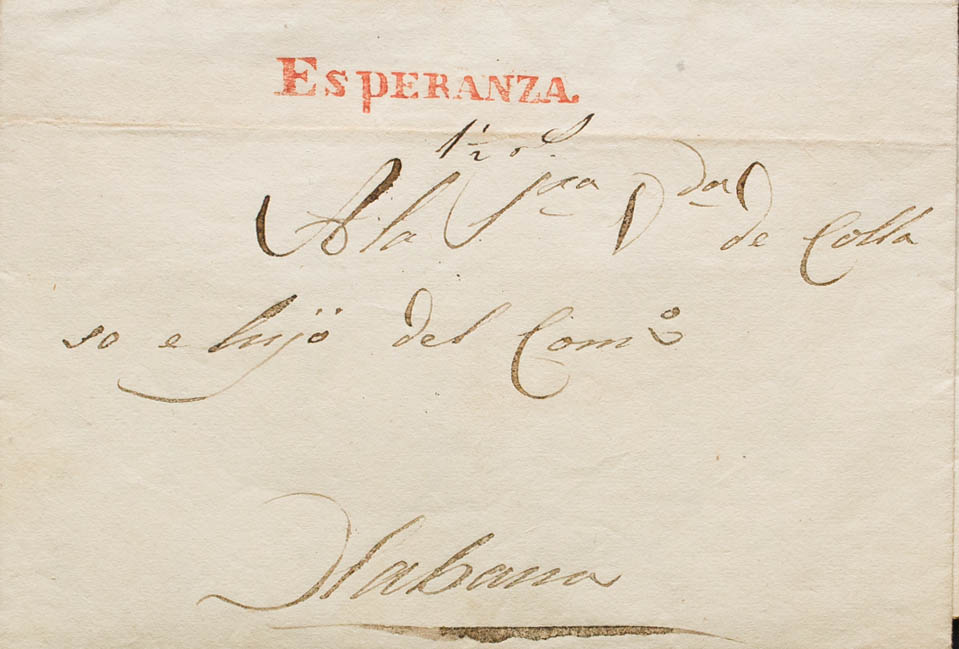 ESPERANZA.
1½ rl.
A la Sra Vda de Colla
so e hijo del Como
Habana